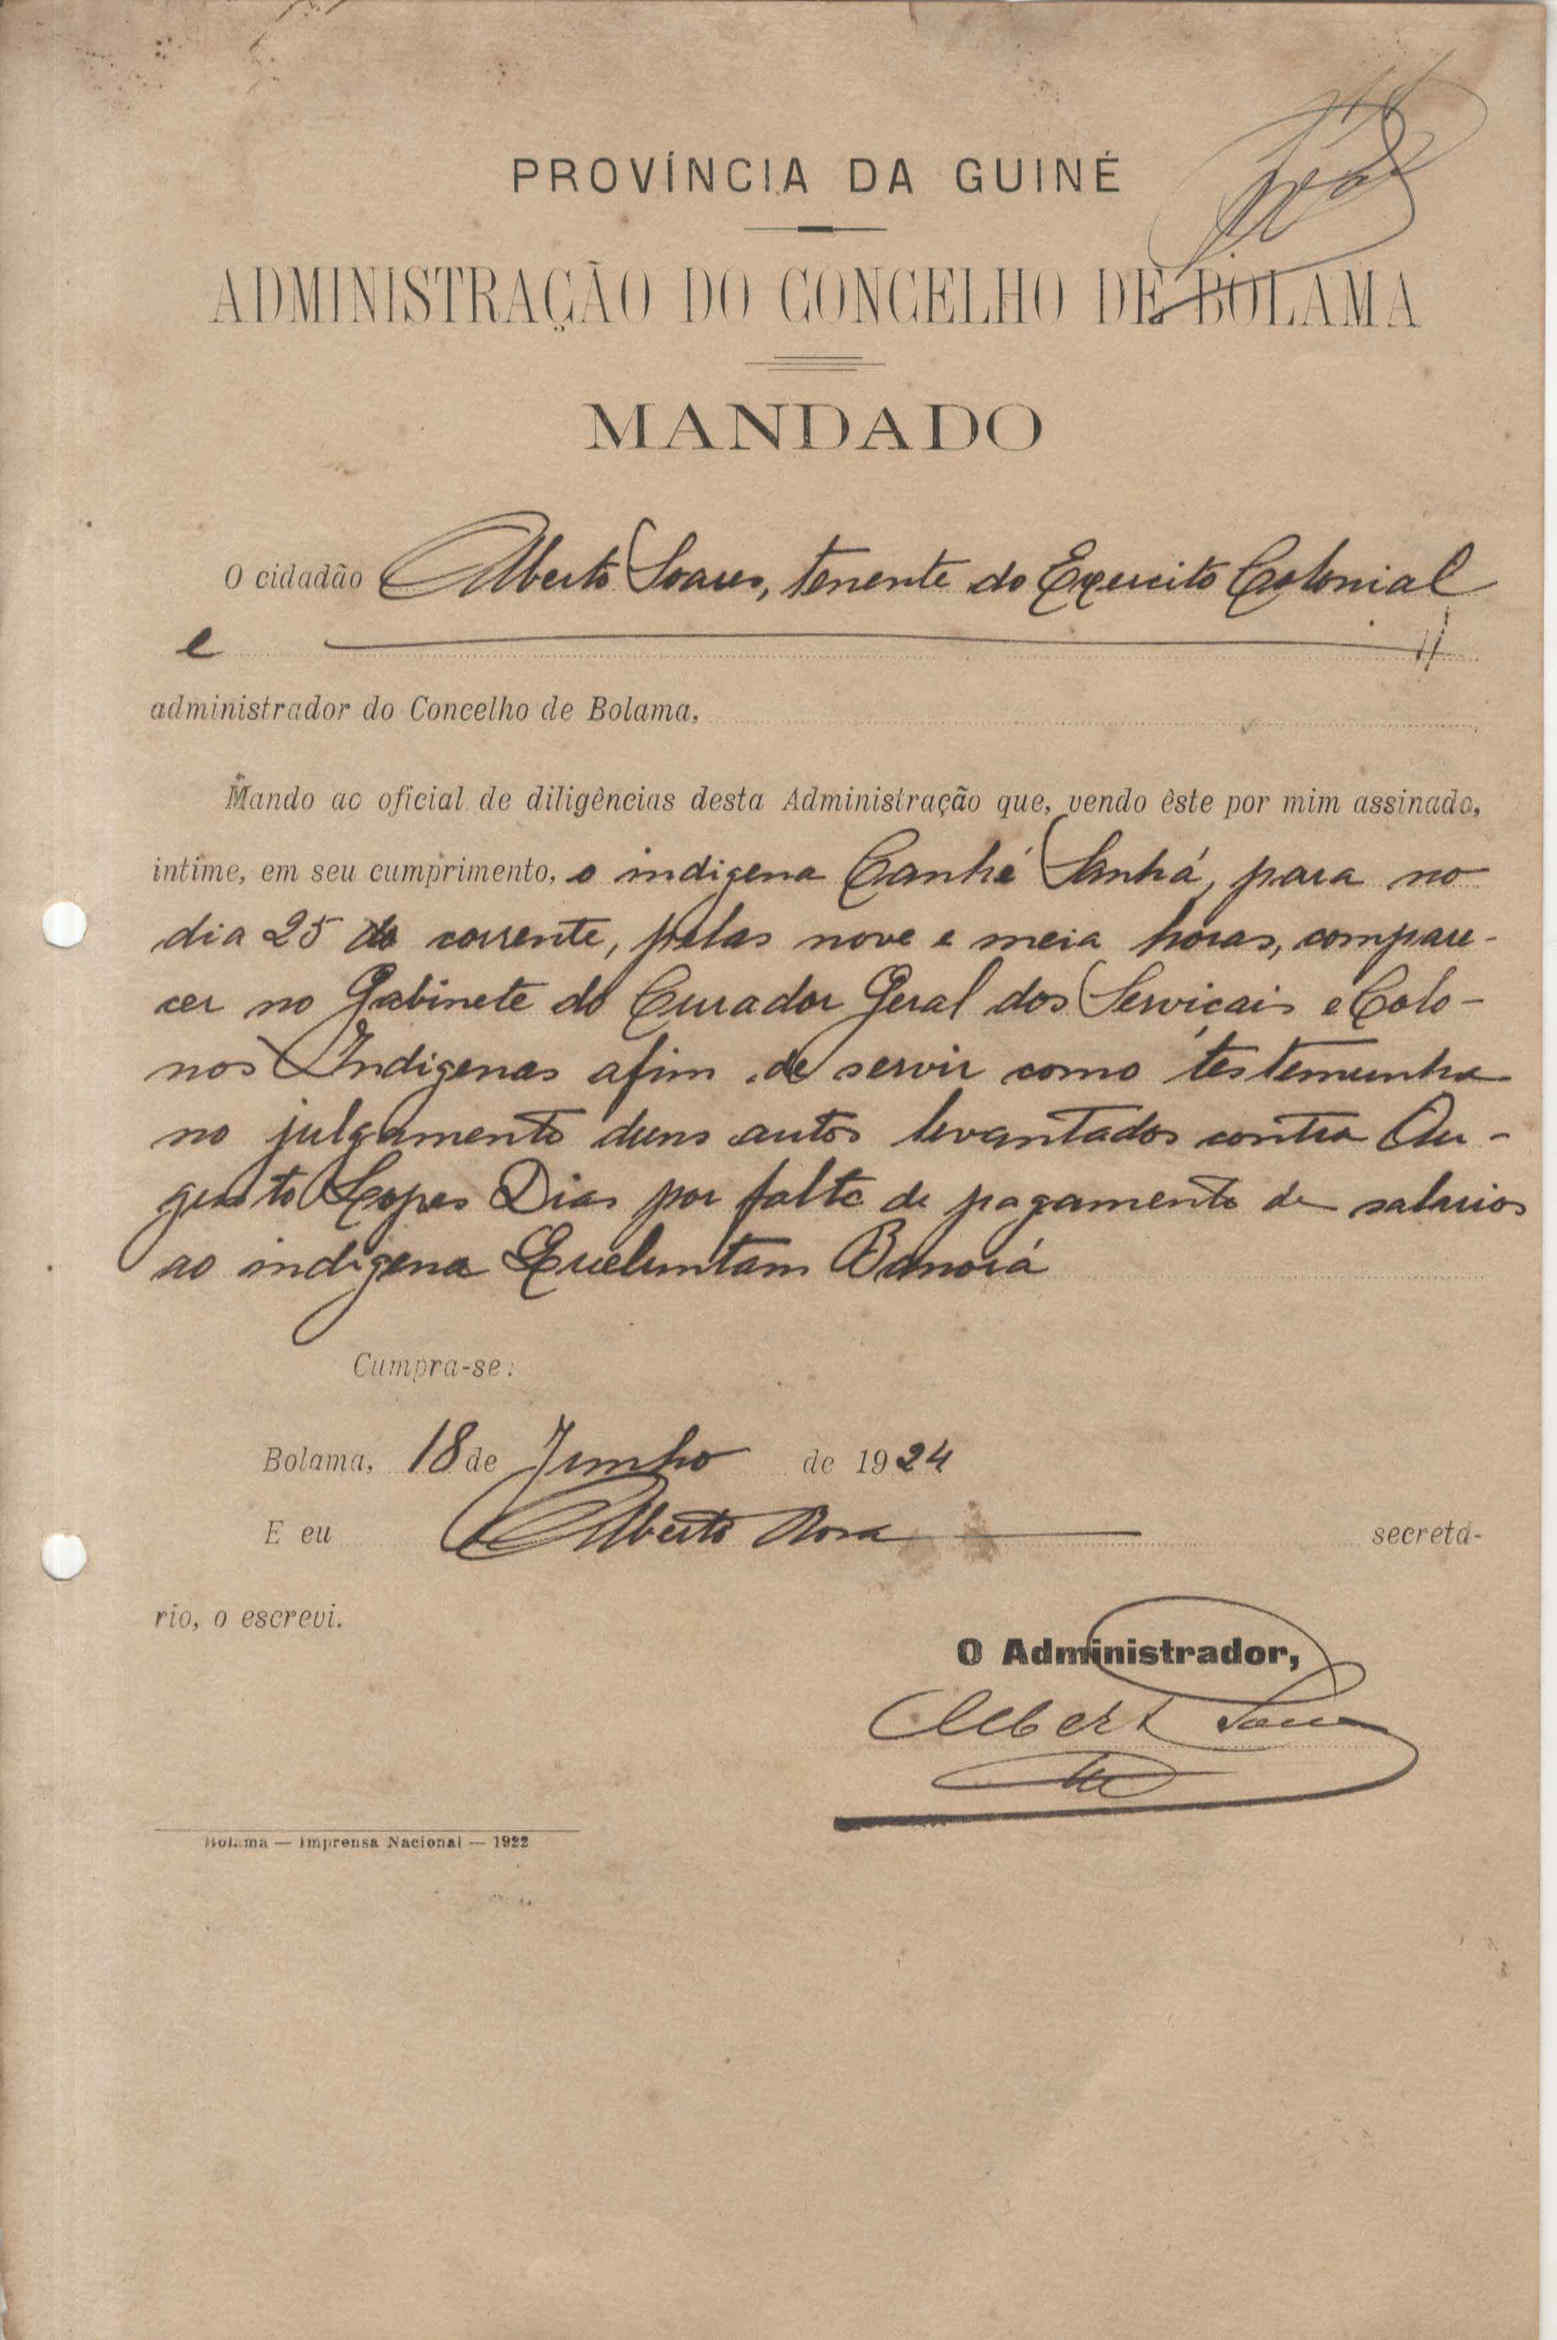 PROVÍNCIA DA GUINÉ
ADMINISTRAÇÃO DO CONCELHO DE BOLAMA
MANDADO
O cidadão Alberto Soares, tenente do Exercito Colonial
e
administrador do Concelho de Bolama,
Mando ao oficial de diligências desta Administração que, vendo êste por mim assinado,
intime, em seu cumprimento, o indigena Canhé Sanhá, para no
dia 25 do corrente, pelas nove e meia horas, compare-
cer no Gabinete do Curador Geral dos Serviçais e Colo-
nos Indigenas afim de servir como testemunha
no julgamento duns autos levantados contra Au-
gusto Lopes Dias por falta de pagamento de salarios
ao indigena
Cumpra-se:
Bolama, 18 de Junho de 1924
E eu Alberto Rosa secretá-
rio, o escrevi.
O Administrador,
Alberto Soares
Bolama — Imprensa Nacional — 1922